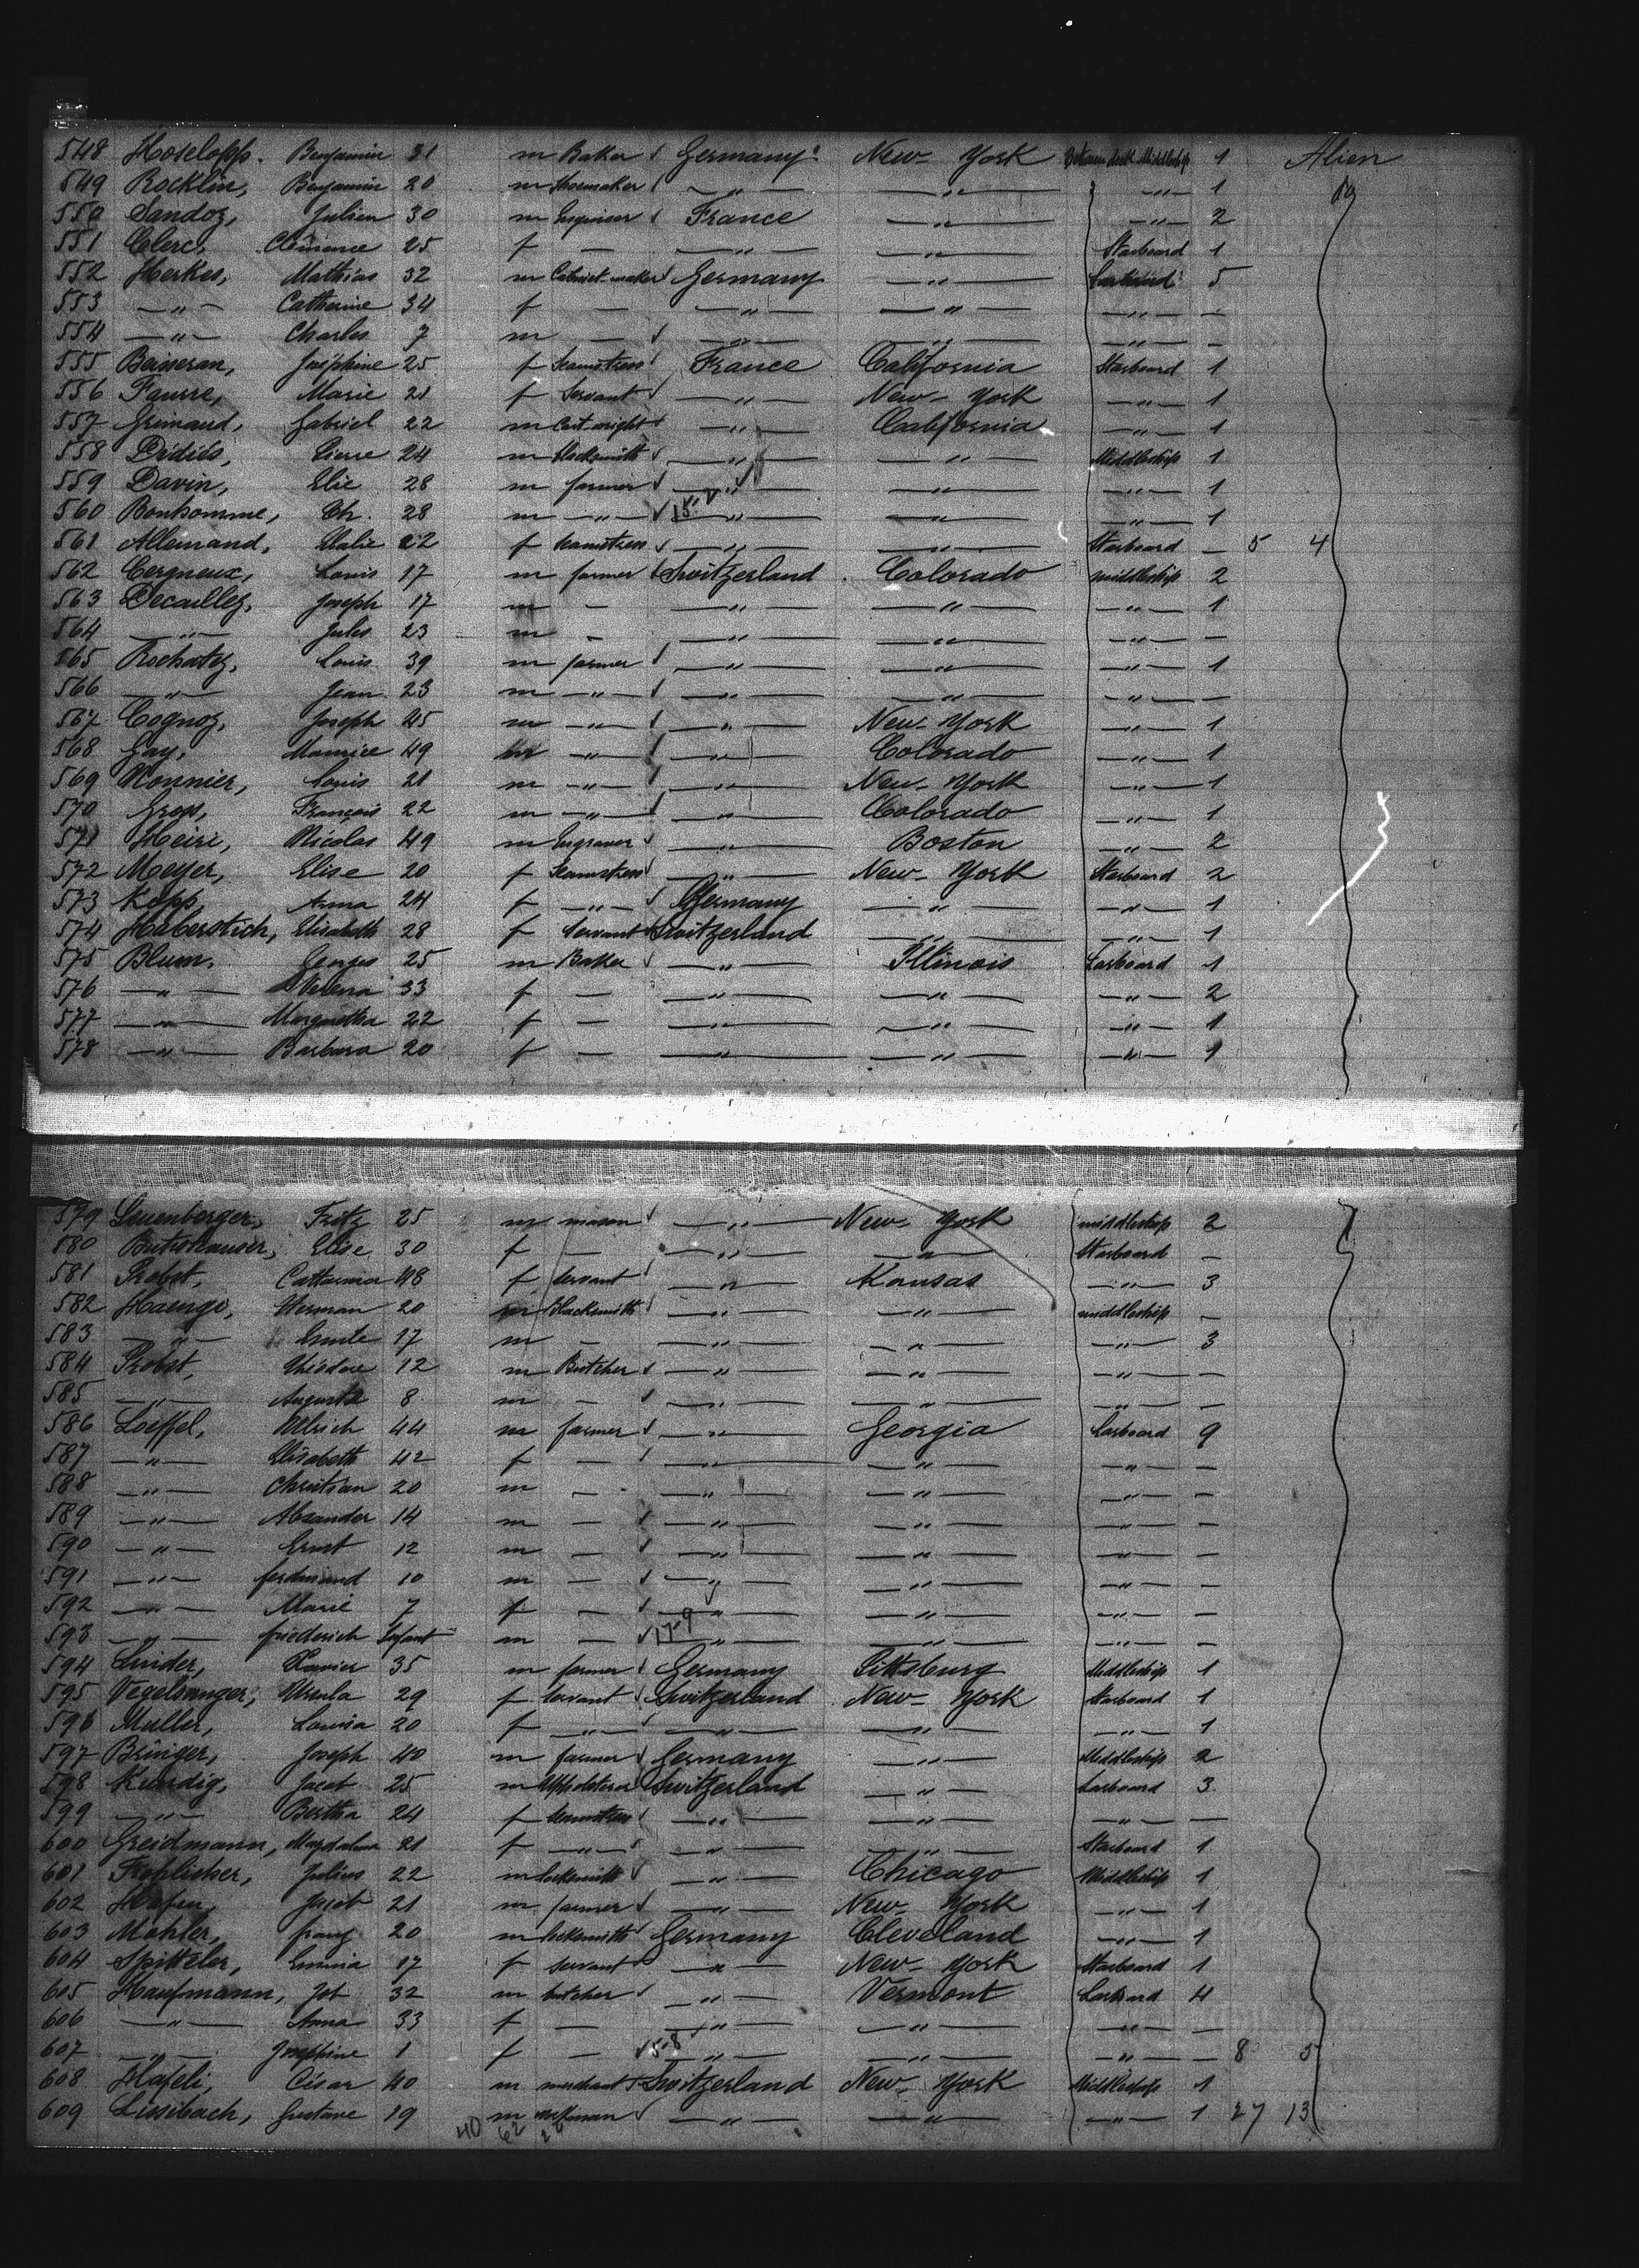 548 Hoselopp. Benjamin 31 m Baker √ Germany New-York Between deck Middleship 1 Alien
549 Rocklin, Benjamin 20 m Shoemaker √ —"— —"— —"— 1
550 Sandoz, Julien 30 m Engraver √ France —"— —"— 2
551 Clerc, Clémence 25 f — —"— —"— Starboard 1
552 Herkes, Mathias 32 m Cabinet-maker √ Germany —"— Larboard 5
553 —"— Catherine 34 f — —"— —"— —"— —
554 —"— Charles 7 m — √ —"— —"— —"— —
555 Beisseran, Joséphine 25 f Seamstress √ France California Starboard 1
556 Faurre, Marie 21 f Servant √ —"— New-York —"— 1
557 Grimaud, Gabriel 22 m Cart-wright √ —"— California —"— 1
558 Pierre 24 m blacksmith √ —"— —"— Middleship 1
559 Davin, Elie 28 m farmer √ —"— —"— —"— 1
560 Bonhomme, Ch. 28 m —"— √ —"— —"— —"— 1
561 Allemand, 22 f seamstress √ —"— —"— Starboard — 5 4
562 Cergneux, Louis 17 m farmer √ Switzerland Colorado middleship 2
563 Decaillez, Joseph 17 m — —"— —"— —"— 1
564 —"— Jules 23 m — —"— —"— —"— —
565 Rochatz, Louis 39 m farmer √ —"— —"— —"— 1
566 —"— Jean 23 m —"— √ —"— —"— —"— —
567 Cognoz, Joseph 45 m —"— √ —"— New-York —"— 1
568 Gay, Maurice 49 m —"— √ —"— Colorado —"— 1
569 Monnier, Louis 21 m —"— √ —"— New-York —"— 1
570 Gross, François 22 m —"— √ —"— Colorado —"— 1
571 Heiri, Nicolas 49 m Engraver √ —"— Boston —"— 2
572 Meyer, Elise 20 f Seamstress √ —"— New-York Starboard 2
573 Kopp, Anna 24 f —"— √ Germany —"— —"— 1
574 Haberstich, Elisabeth 28 f Servant √ Switzerland —"— —"— 1
575 Blum, Georges 25 m Baker √ —"— Illinois Larboard 1
576 —"— Verena 33 f — —"— —"— —"— 2
577 —"— Margaretha 22 f — —"— —"— —"— 1
578 —"— Barbara 20 f — —"— —"— —"— 1
579 Leuenberger, Fritz 25 m mason √ —"— New-York middleship 2
580 Elise 30 f — —"— —"— Starboard —
581 Probst, Catharina 48 f servant √ —"— Kansas —"— 3
582 Haengi, Herman 20 m blacksmith √ —"— —"— middleship —
583 —"— Emile 17 m — —"— —"— —"— 3
584 Probst, Théodore 12 m Butcher √ —"— —"— —"— —
585 —"— Auguste 8 m — √ —"— —"— —"— —
586 Loeffel, Ulrich 44 m farmer √ —"— Georgia Larboard 9
587 —"— Elisabeth 42 f — √ —"— —"— —"— —
588 —"— Christian 20 m — —"— —"— —"— —
589 —"— Alexander 14 m — √ —"— —"— —"— —
590 —"— Ernst 12 m — √ —"— —"— —"— —
591 —"— ferdinand 10 m — √ —"— —"— —"— —
592 —"— Marie 7 f — √ —"— —"— —"— —
593 —"— friederich Infant m — √ 17-9 —"— —"— —"— —
594 Linder, Xavier 35 m farmer √ Germany Pittsburg Middleship 1
595 Vegelsanger, Ursula 29 f Servant √ Switzerland New-York Starboard 1
596 Muller, Louisa 20 f —"— √ —"— —"— —"— 1
597 Bringer, Joseph 40 m farmer √ Germany —"— Middleship 2
598 Kundig, Jacob 25 m Upholsterer Switzerland —"— Larboard 3
599 —"— Bertha 24 f seamstress √ —"— —"— —"— —
600 Greidmann, Magdalena 21 f —"— √ —"— —"— Starboard 1
601 Frohlicher, Julius 22 m locksmith √ —"— Chicago Middleship 1
602 Hafen, Jacob 21 m farmer √ —"— New-York —"— 1
603 Mohler, franz 20 m locksmith √ Germany Cleveland —"— 1
604 Spitteler, Emma 17 f servant √ —"— New-York Starboard 1
605 Haufmann, Jos 32 m butcher √ —"— Vermont Larboard 4
606 —"— Anna 33 f — —"— —"— —"— —
607 —"— Josephine 1 f — √ 5-8 —"— —"— —"— — 8 5
608 Hafeli, César 40 m merchant √ Switzerland New-York Middleship 1
609 Lissibach, Gustave 19 m √ —"— —"— —"— 1 27 13
40 62